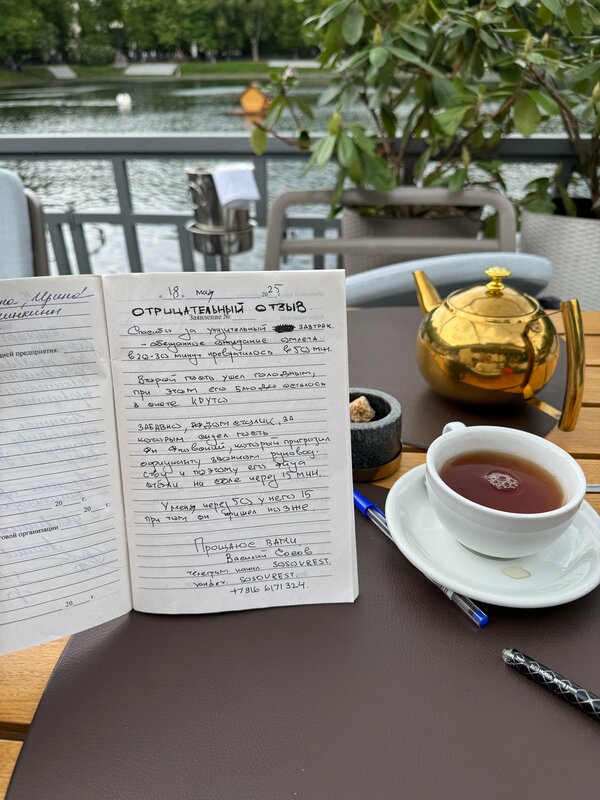 Ирина
цией предприятия:
20 г.
говой организации
20 г.
„ 18 „ мая 2025 г.
ОТРИЦАТЕЛЬНЫЙ ОТЗЫВ
Заявление №
Спасибо за унизительный завтрак.
- обещанное ожидание омлета
в 20-30 минут превратилось в 50 мин.
Второй гость ушел голодным,
при этом его блюдо осталось
в счете. КРУТО
ЗАБАВНО, другой столик, за
которым сидел гость
который пригрозил
официанту звонком руковод-
ству и поэтому его яйца
были на столе через 15 мин.
У меня через 50 у него 15
при том он пришел позже
Прощаюсь с ВАМИ
Василий Сосов
телеграм канал SOSOVREST
SOSOVREST.
+7916 6171324.